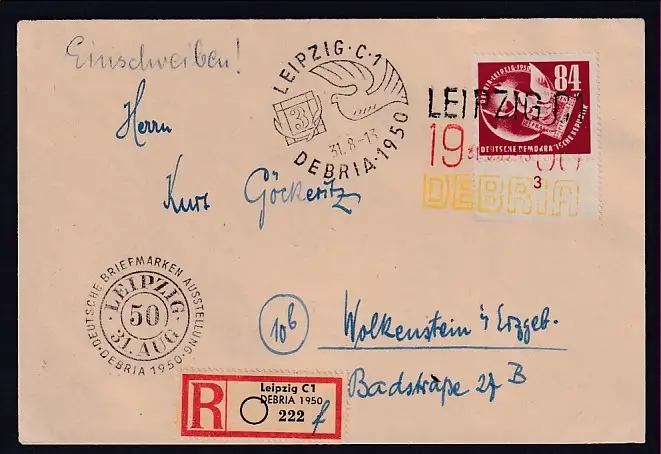 Einschreiben!
LEIPZIG·C·1
3
31.8-13
DEBRIA·1950
84
DEUTSCHE DEMOKRATISCHE REPUBLIK
LEIPZIG C1
19 50
DEBRIA
3
Herrn
Kurt Göckeritz
DEUTSCHE BRIEFMARKEN AUSSTELLUNG
LEIPZIG
50
31. AUG
·DEBRIA 1950·
10b
Wolkenstein i/ Erzgeb.
Badstraße 27 B
R
Leipzig C1
DEBRIA 1950
222 f